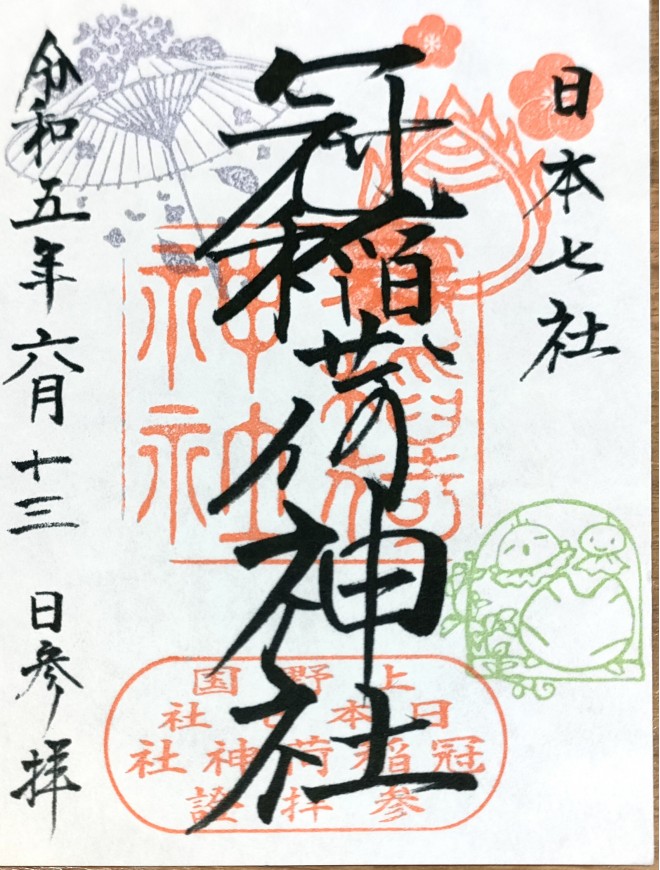 日本七社
冠稲荷神社
令和五年六月十三日参拝
冠稲荷神社
上野国
日本七社
冠稲荷神社
參拝證